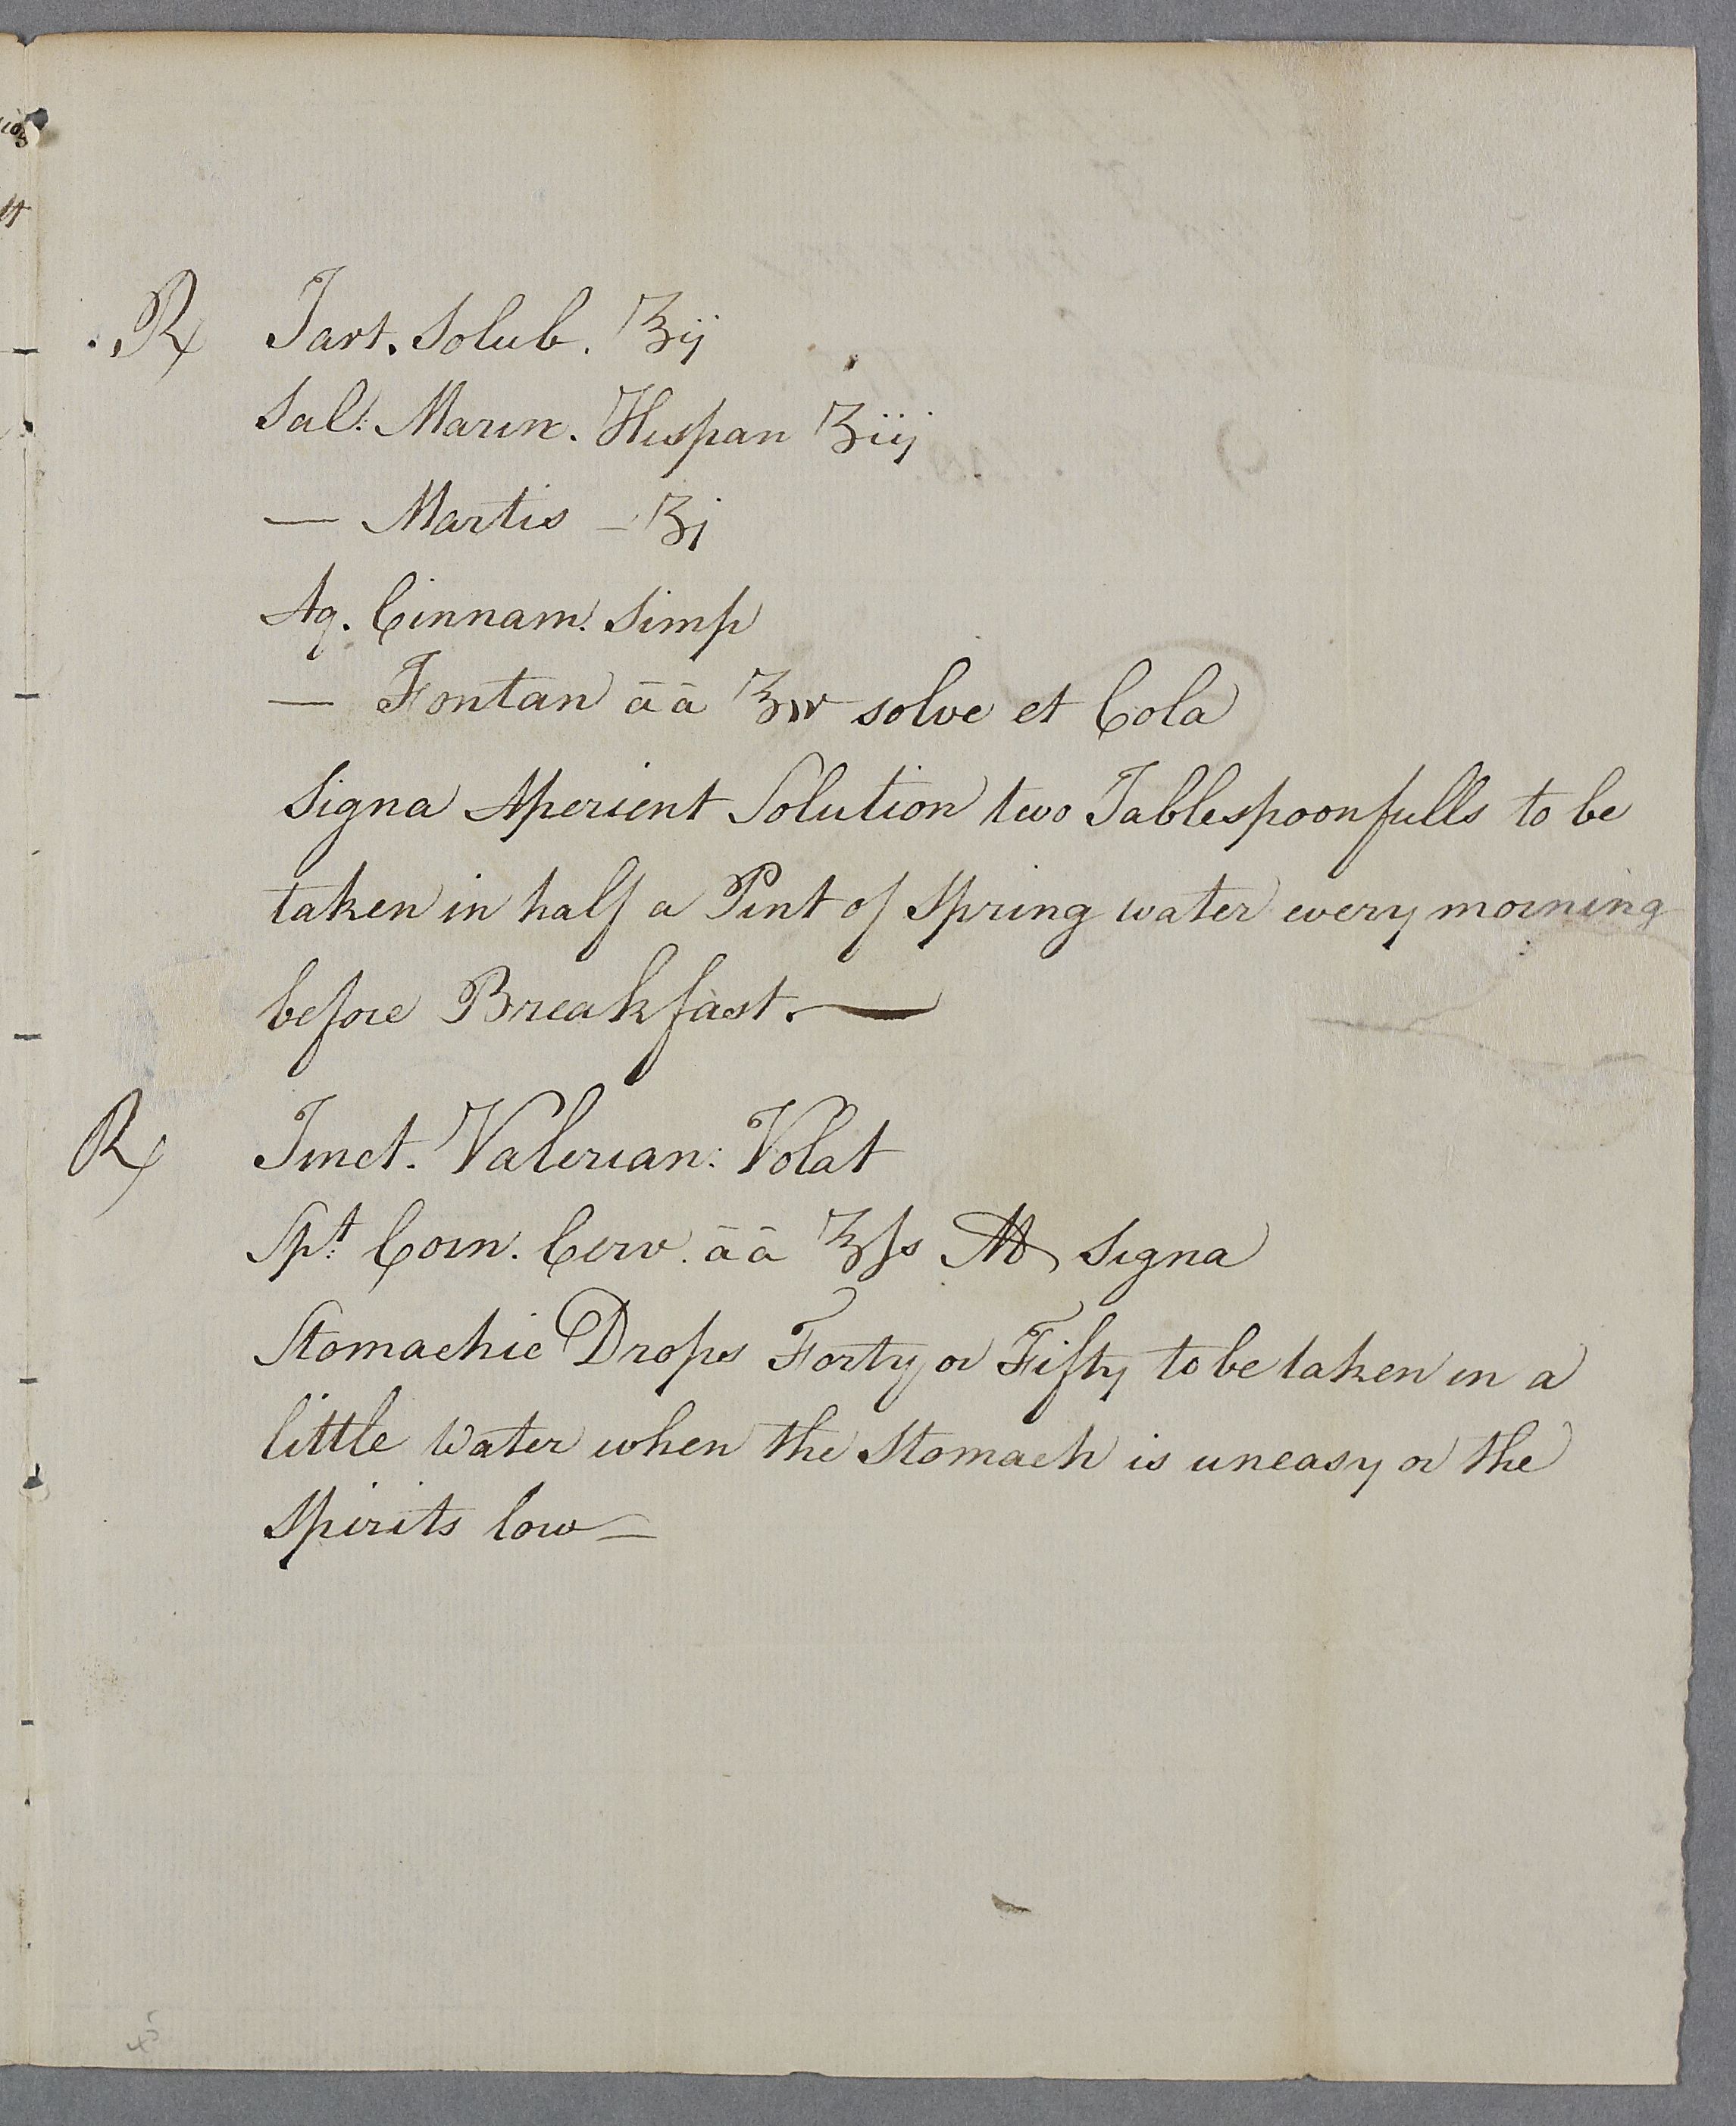 ℞ Tart. Solub. ℥ij
Sal: Marin. Hispan ℥iij
— Martis — ʒj
Aq. Cinnam: Simp
— Fontan āā ℥iv solve et Cola
Signa Aperient Solution two Tablespoonfulls to be
taken in half a Pint of Spring water every morning
before Breakfast. —
℞ Tinct. Valerian: Volat
Spt: Corn. Cerv. āā ℥ſs M Signa
Stomachic Drops Forty or Fifty to be taken in a
little Water when the Stomach is uneasy or the
Spirits low —
45